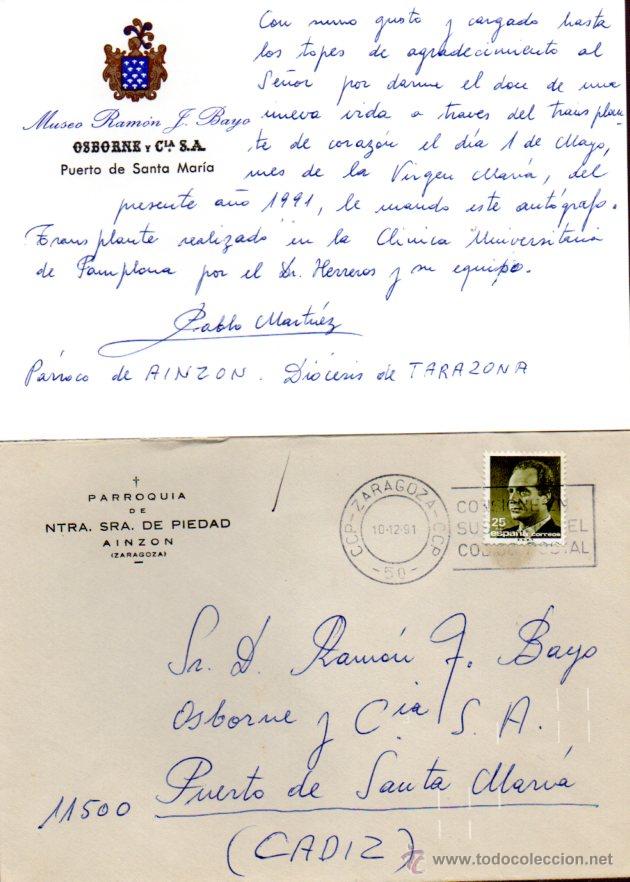 Con sumo gusto y cargado hasta
los topes de agradecimiento al
Señor por darme el don de una
nueva vida a traves del transplan-
te de corazón el día 1 de Mayo,
mes de la Virgen María, del
presente año 1991, le mando este autógrafo.
Transplante realizado en la Clinica Universitaria
de Pamplona por el Dr. Herreros y su equipo.
Pablo Martínez
Párroco de AINZON. Diócesis de TARAZONA
Museo Ramón J. Bayo
OSBORNE Y CIA S.A.
Puerto de Santa María
PARROQUIA
DE
NTRA. SRA. DE PIEDAD
AINZON
(ZARAGOZA)
CCP-ZARAGOZA-CCP
10-12-91
-50-
CON
EN
SU
EL
CODIGO POSTAL
25
españa correos
Sr. D. Ramón J. Bayo
Osborne y Cia S. A.
11500 Puerto de Santa María
(CADIZ)
www.todocoleccion.net